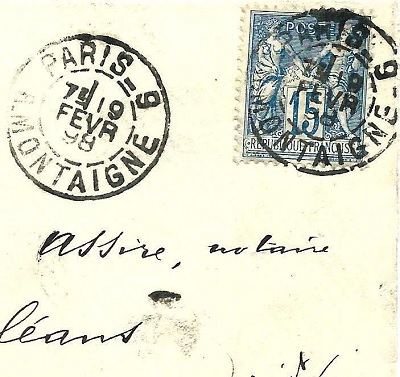 PARIS-9
7E/19
FEVR
98
AV. MONTAIGNE
POSTE
15
REPUBLIQUE FRANÇAISE
PARIS-9
19
FEVR
98
MONTAIGNE
Assire, notaire
léans